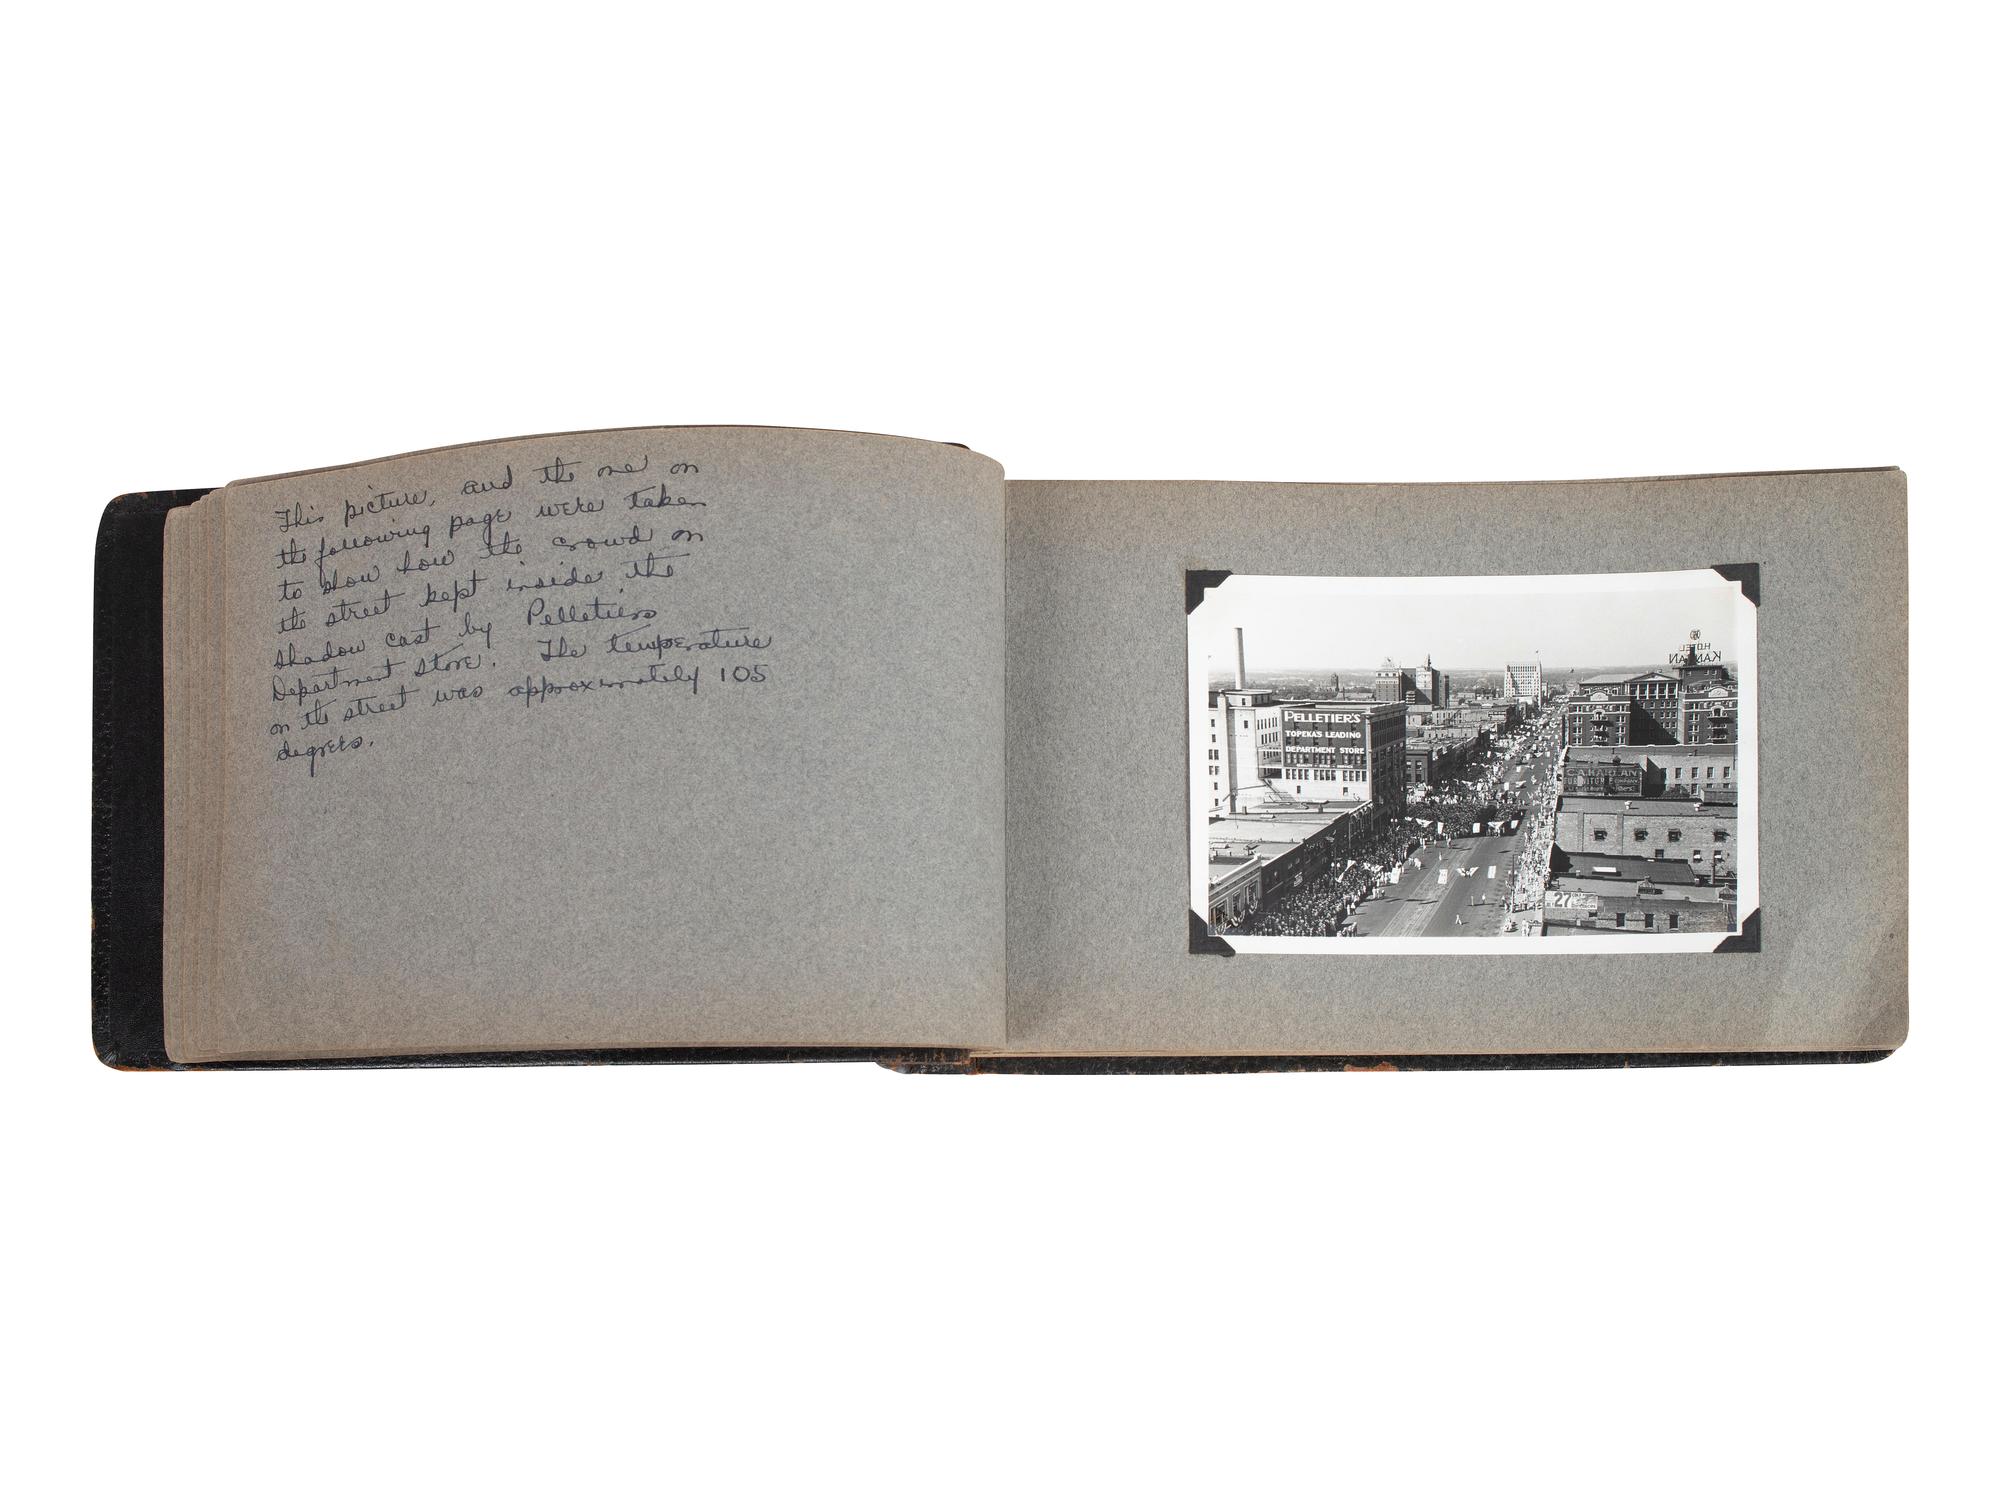 This picture, and the one on
the following page were taken
to show how the crowd on
the street kept inside the
shadow cast by Pelletiers
Department Store. The temperature
on the street was approximately 105
degrees.
PELLETIER'S
TOPEKA'S LEADING
DEPARTMENT STORE
HOTEL
KANSAN
C.A. KARLAN
FURNITURE Company
27